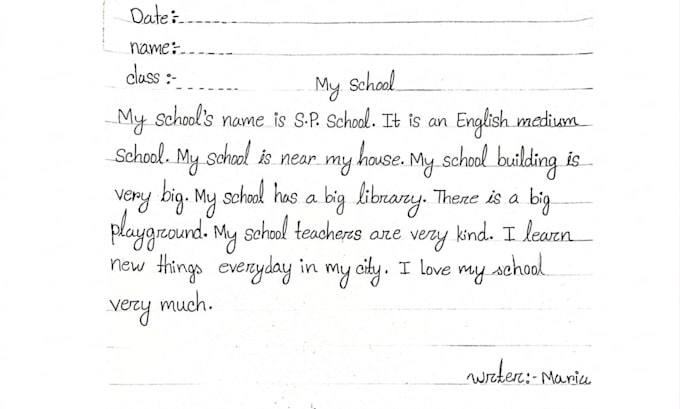 Date:-------
name:------
class :- -------
My school
My school's name is S.P. School. It is an English medium
School. My school is near my house. My school building is
very big. My school has a big library. There is a big
playground. My school teachers are very kind. I learn
new things everyday in my city. I love my school
very much.
writer:- Maria